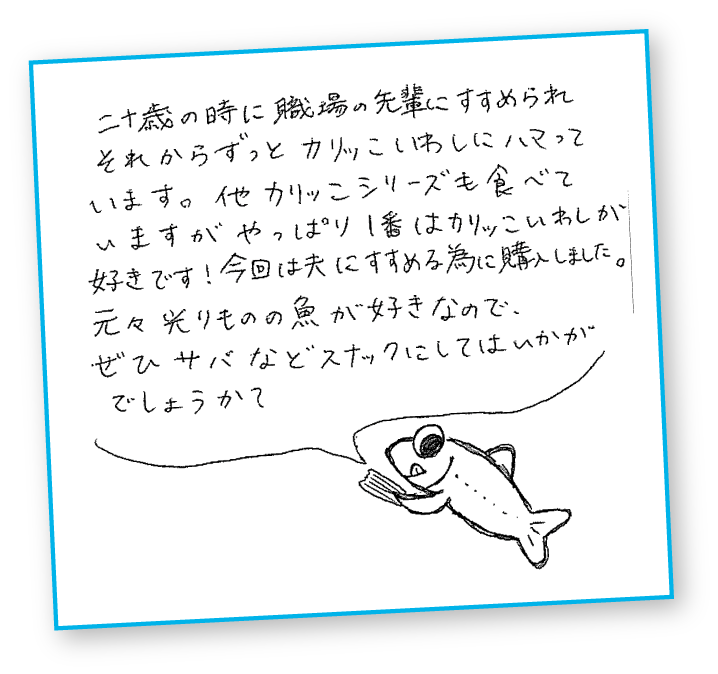 二十歳の時に職場の先輩にすすめられ
それからずっとカリッこいわしにハマって
います。他カリッこシリーズも食べて
いますがやっぱり1番はカリッこいわしが
好きです！今回は夫にすすめる為に購入しました。
元々光りものの魚が好きなので、
ぜひサバなどスナックにしてはいかが
でしょうか？